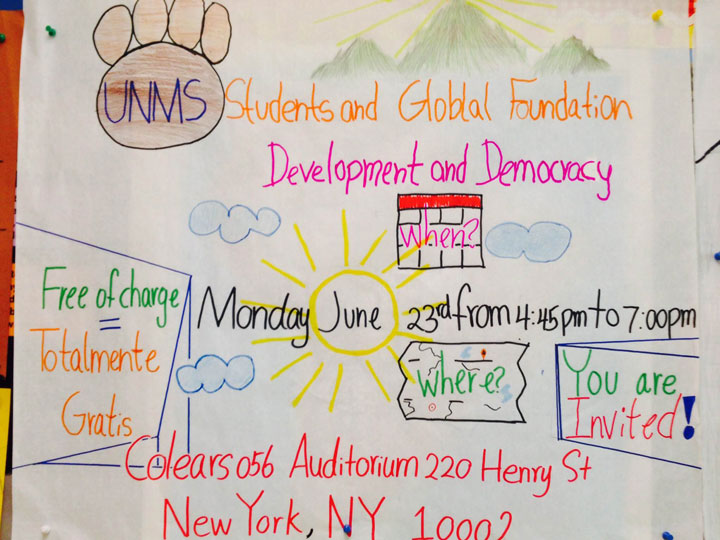 UNMS Students and Globlal Foundation
Development and Democracy
When?
Free of charge
=
Totalmente
Gratis
Monday June 23rd from 4:45pm to 7:00pm
Where?
You are
Invited!
Colears 056 Auditorium 220 Henry St
New York, NY 10002